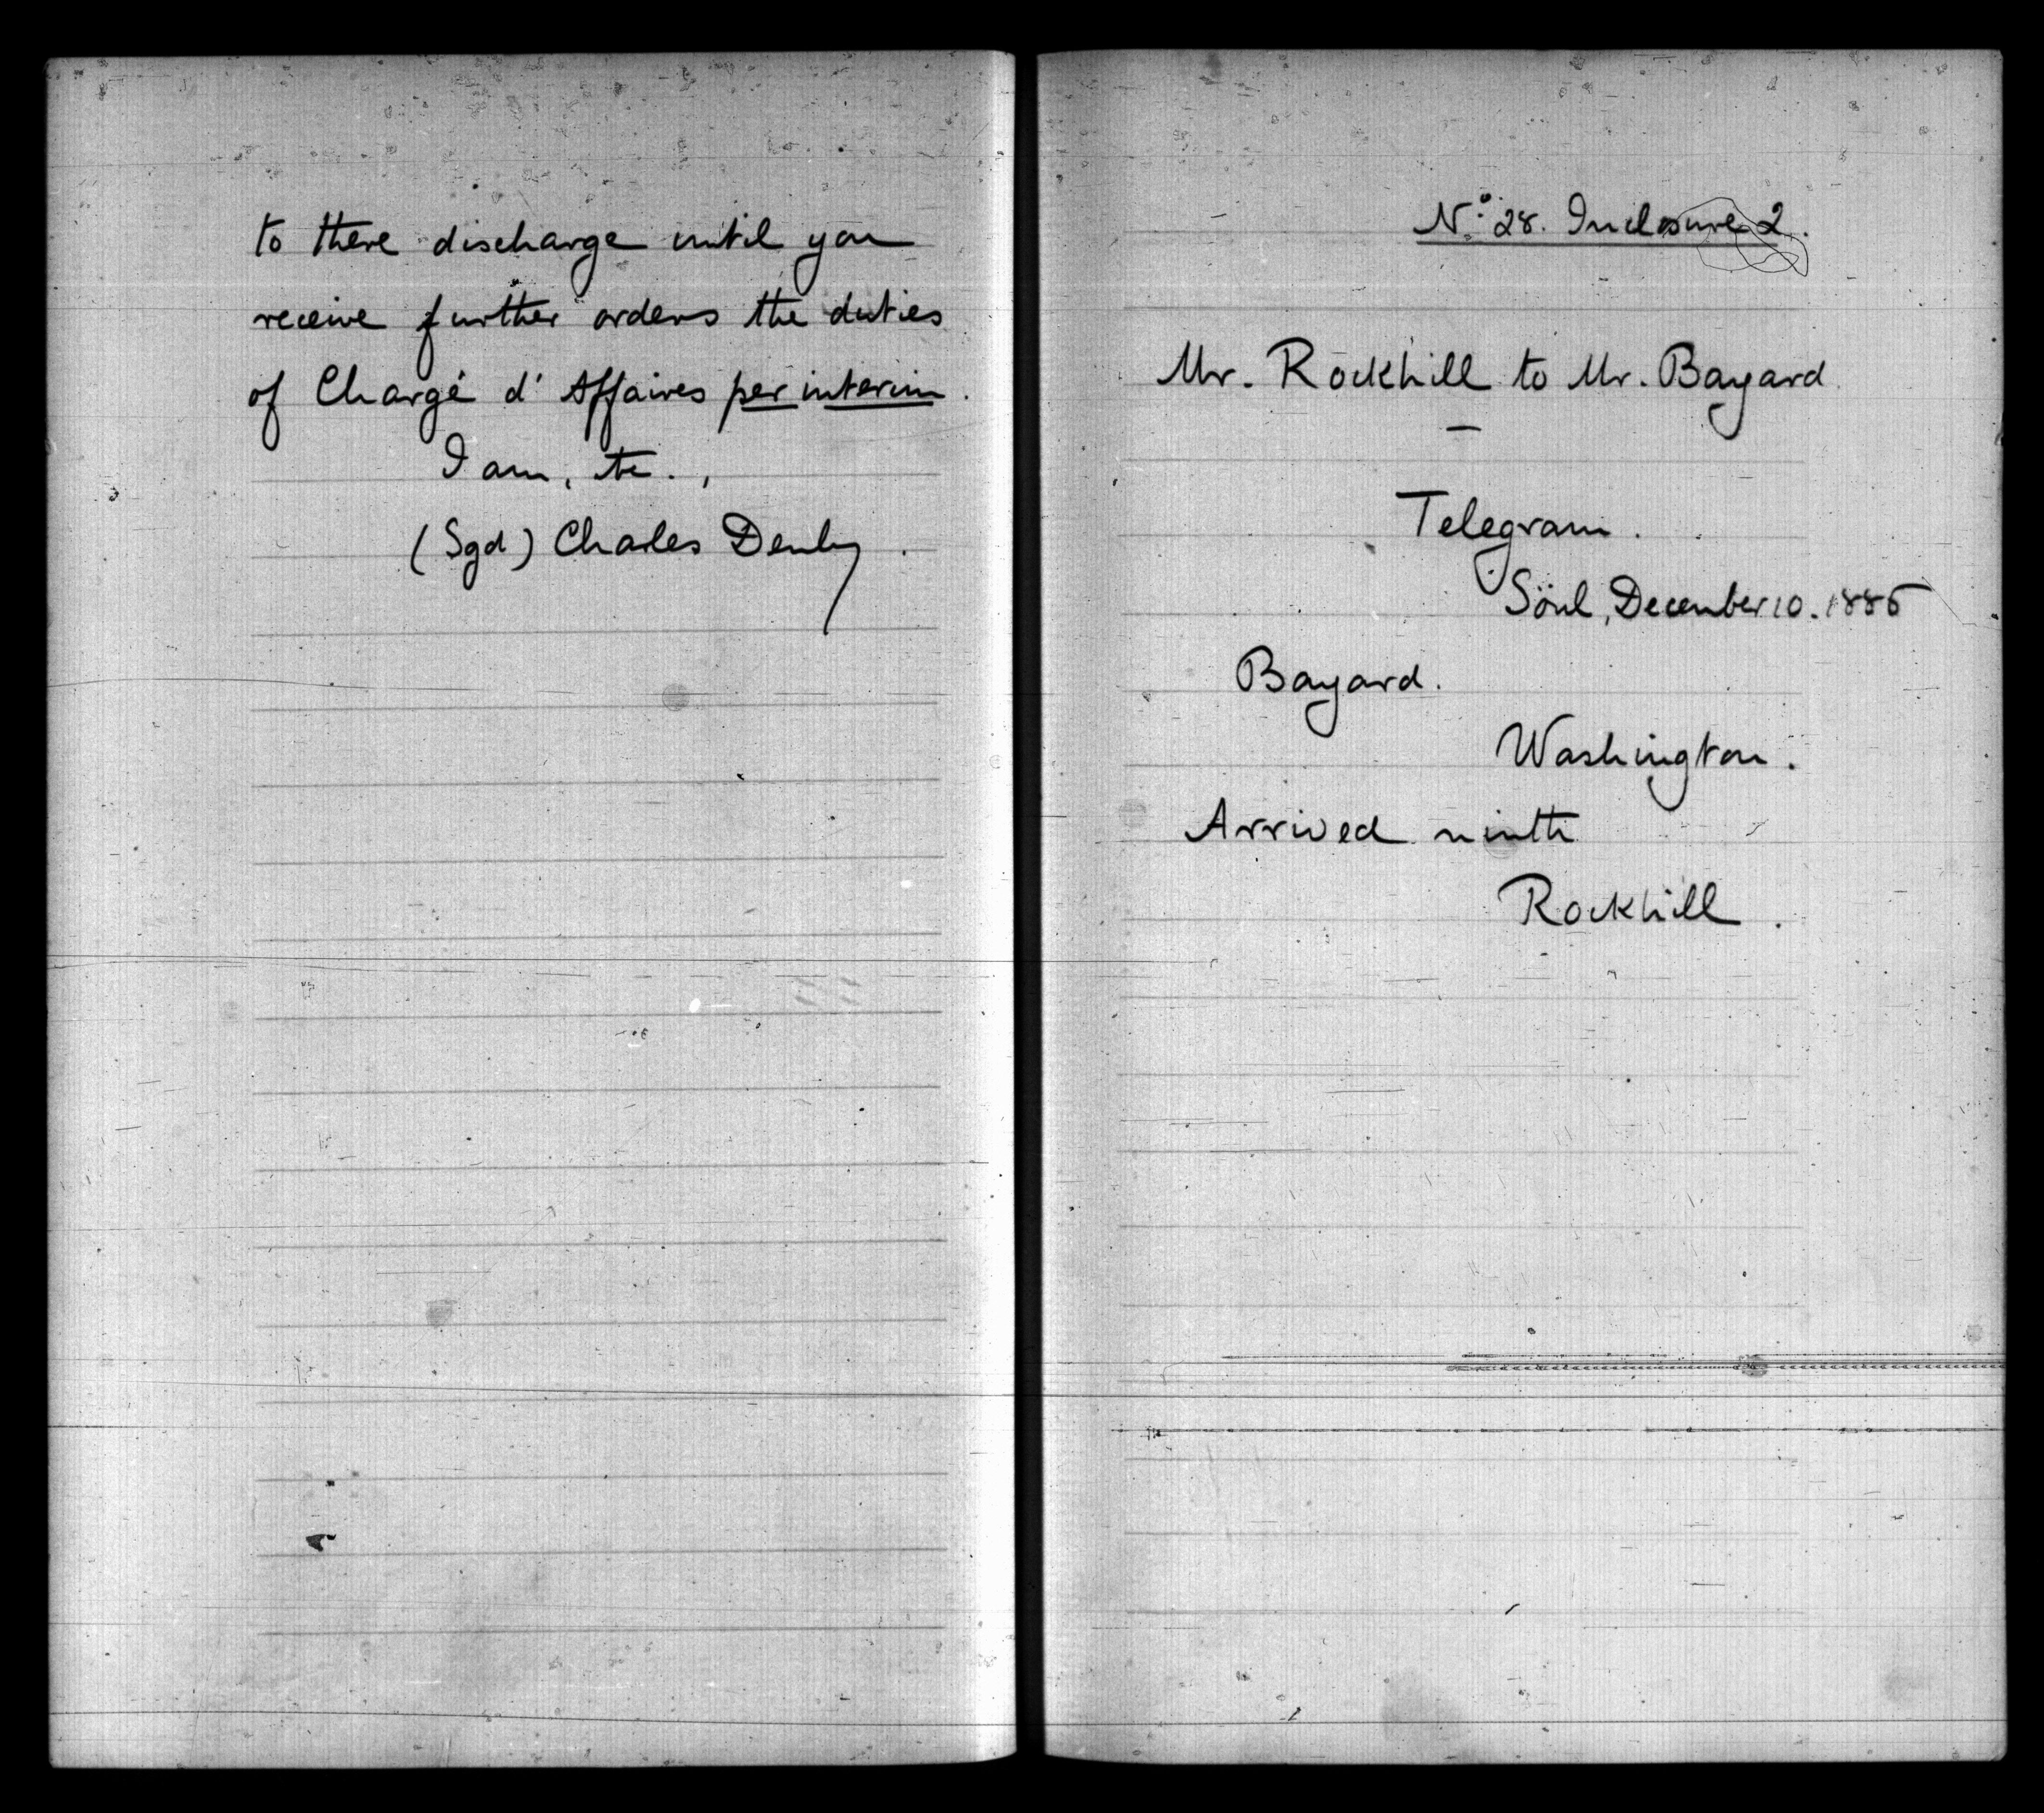 to there discharge until you
receive further orders the duties
of Chargé d'Affaires per interim.
I am, &c.,
(Sgd) Charles Denby.
No. 28. Inclosure 2.
Mr. Rockhill to Mr. Bayard
Telegram.
Söul, December 10. 1886
Bayard.
Washington.
Arrived ninth
Rockhill.